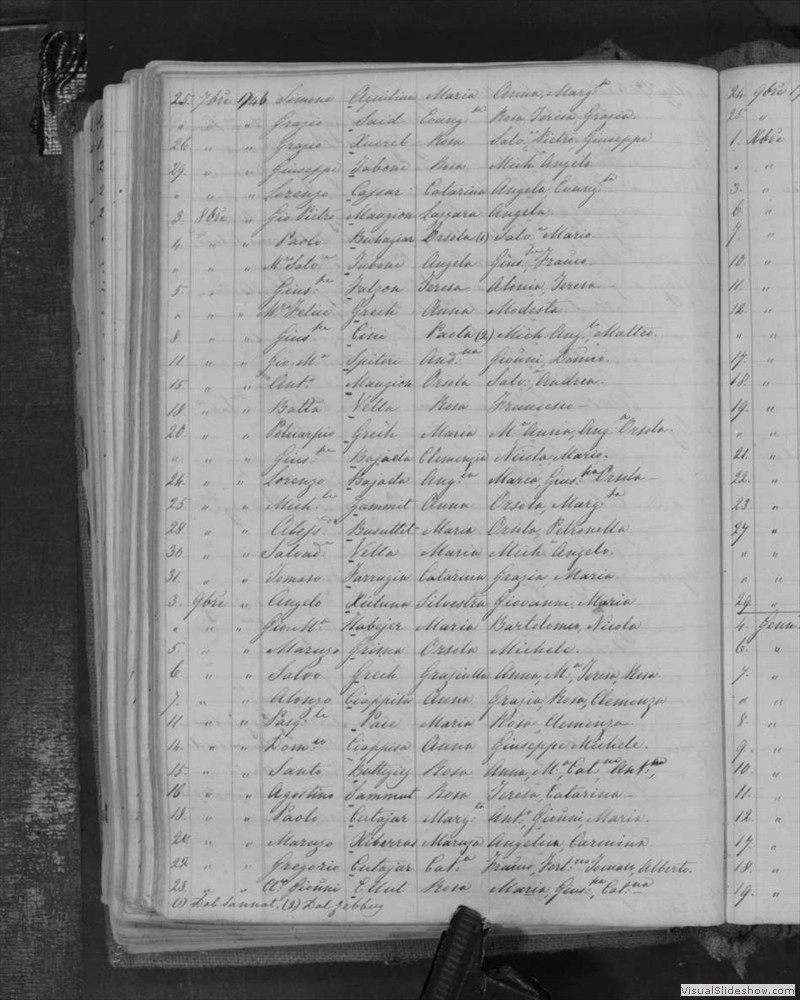 25. 7bre 1746 Simone Aquilina Maria Anna, Marg.ta
" " " Grazio Said Evang.ta Rosa, Teresa, Grazia.
26. " " Grazio Xuereb Rosa Salv.re Pietro, Giuseppe
29. " " Giuseppe Tabone Rosa Mich. Angelo
" " " Lorenzo Cassar Catarina Angela, Evang.ta
3. 8bre " Gio. Pietro Mangion Lazzara Angela.
4. " " Paolo Buhagiar Orsola (1) Salv.re Mario.
" " " M.o Salv.e Tabone Angela Gius. Franco.
5. " " Gius.pe Falzon Teresa Aloisia, Teresa
" " " M.o Felice Grech Anna Modesta
8. " " Gius.pe Cini Paola (2) Mich. Ang.o Matteo.
11. " " Gio. M.a Spiteri And.na Gioanni,
15. " " Ant.o Mangion Orsola Salv.e Andrea.
18. " " Batta Vella Rosa Francesco -
20. " " Policarpio Grech Maria M.a Anna, Ang.a Orsola.
" " " Gius.pe Bajada Clemenzia Nicola Mario.
24. " " Lorenzo Bajada Ang.ca Maria, Gius.pa Orsola -
25. " " Mich.le Zammit Anna Orsola, Marg.ta
28 " " Busuttil Maria Orsola, Petronella.
30. " " Salvad.e Vella Maria Mich. Angelo.
31. " " Tomaso Farrugia Catarina Grazia Maria.
3. 9bre " Angelo Xiluna Silvestra Giovanni, Maria
" " " Gio. M.a Habejer Maria Bartolomeo, Nicola
5. " " Maruzo Grima Orsola Michele.
6 " " Salvo Grech Graziella Anna, M.a Teresa, Rosa
7. " " Alonzo Ciappisa Anna Grazia, Rosa, Clemenza
11. " " Pasq.le Pace Maria Rosa, Clemenza.
14. " " Dom.co Ciappisa Anna Giuseppe Michele.
15. " " Santi Buttigieg Rosa Anna, M.a Cat.na Ant.na
16. " " Agostino Sammut Rosa Teresa, Catarina -
18. " " Paolo Cutajar Marg.ta Ant.o Gioanni, Maria.
20. " " Maruzo Xiberras Maruza Angelica, Carmina
22. " " Gregorio Cutajar Cat.a Franco, Fort.na Tomaso, Alberto.
23. " " Ellul Rosa Maria, Gius.pa, Cat.na
(1) Dal Sannat. (2) Dal Zebbug
24. 9bre 17
25. "
1. Xbre
" "
3. "
6 "
7. "
10. "
11. "
12. "
" "
17. "
18. "
19. "
" "
21. "
22. "
23. "
27 "
" "
" "
29. "
4. Genn.
6. "
7. "
" "
8. "
9. "
10. "
11. "
12. "
17. "
18. "
19. "
VisualSlideshow.com